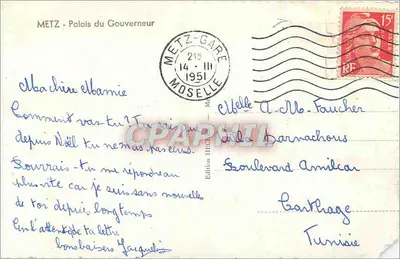 METZ - Palais du Gouverneur
METZ-GARE
21H
14 - III
1951
MOSELLE
15F
RF
POSTES
Ma chère Mamie
Comment vas-tu ?
depuis Noël tu ne m'as pas écrit.
Pourrais-tu me répondre
plus vite car je suis sans nouvelle
de toi depuis longtemps
En l'attente de ta lettre
bons baisers Jacqueline
Melle A-M. Faucher
villa Darnachous
Boulevard Amilcar
Carthage
Tunisie
CPAPHIL